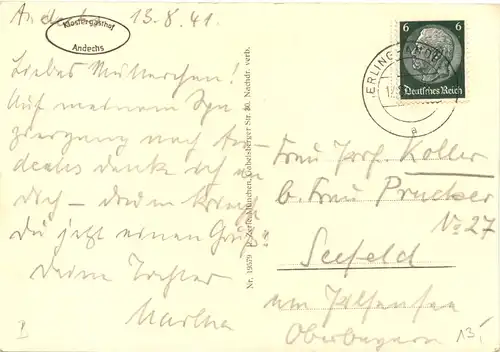 Andechs 13.8.41.
Klostergasthof
Andechs
Liebes Mutterchen!
Auf meinem Spa
ziergang nach An-
dechs denke ich an
dich – drum kriegst
Du jetzt einen Gruß
Deine Tochter
Martha
Nr. 19579 München, Gabelsberger Str. 30. Nachdr. verb.
6 6
Deutsches Reich
ERLING-ANDECHS
a
Frau Prof. Koller
b. Frau Prucker
No 27
Seefeld
am Pilsensee
Oberbayern
13,-